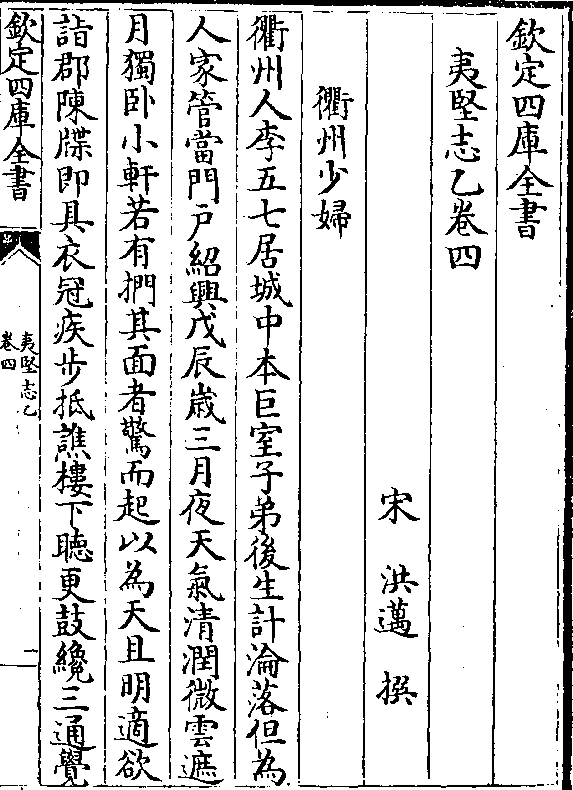 欽定四庫全書
夷堅志乙卷四
宋 洪邁 撰
衢州少婦
衢州人李五七居城中本巨室子弟後生計淪落但為
人家管當門戶紹興戊辰歲三月夜天氣清潤微雲遮
月獨卧小軒若有捫其面者驚而起以為天且明適欲
詣郡陳牒即具衣冠疾步抵譙樓下聽更鼓纔三通覺
欽定四庫全書
夷堅志乙
卷四
一